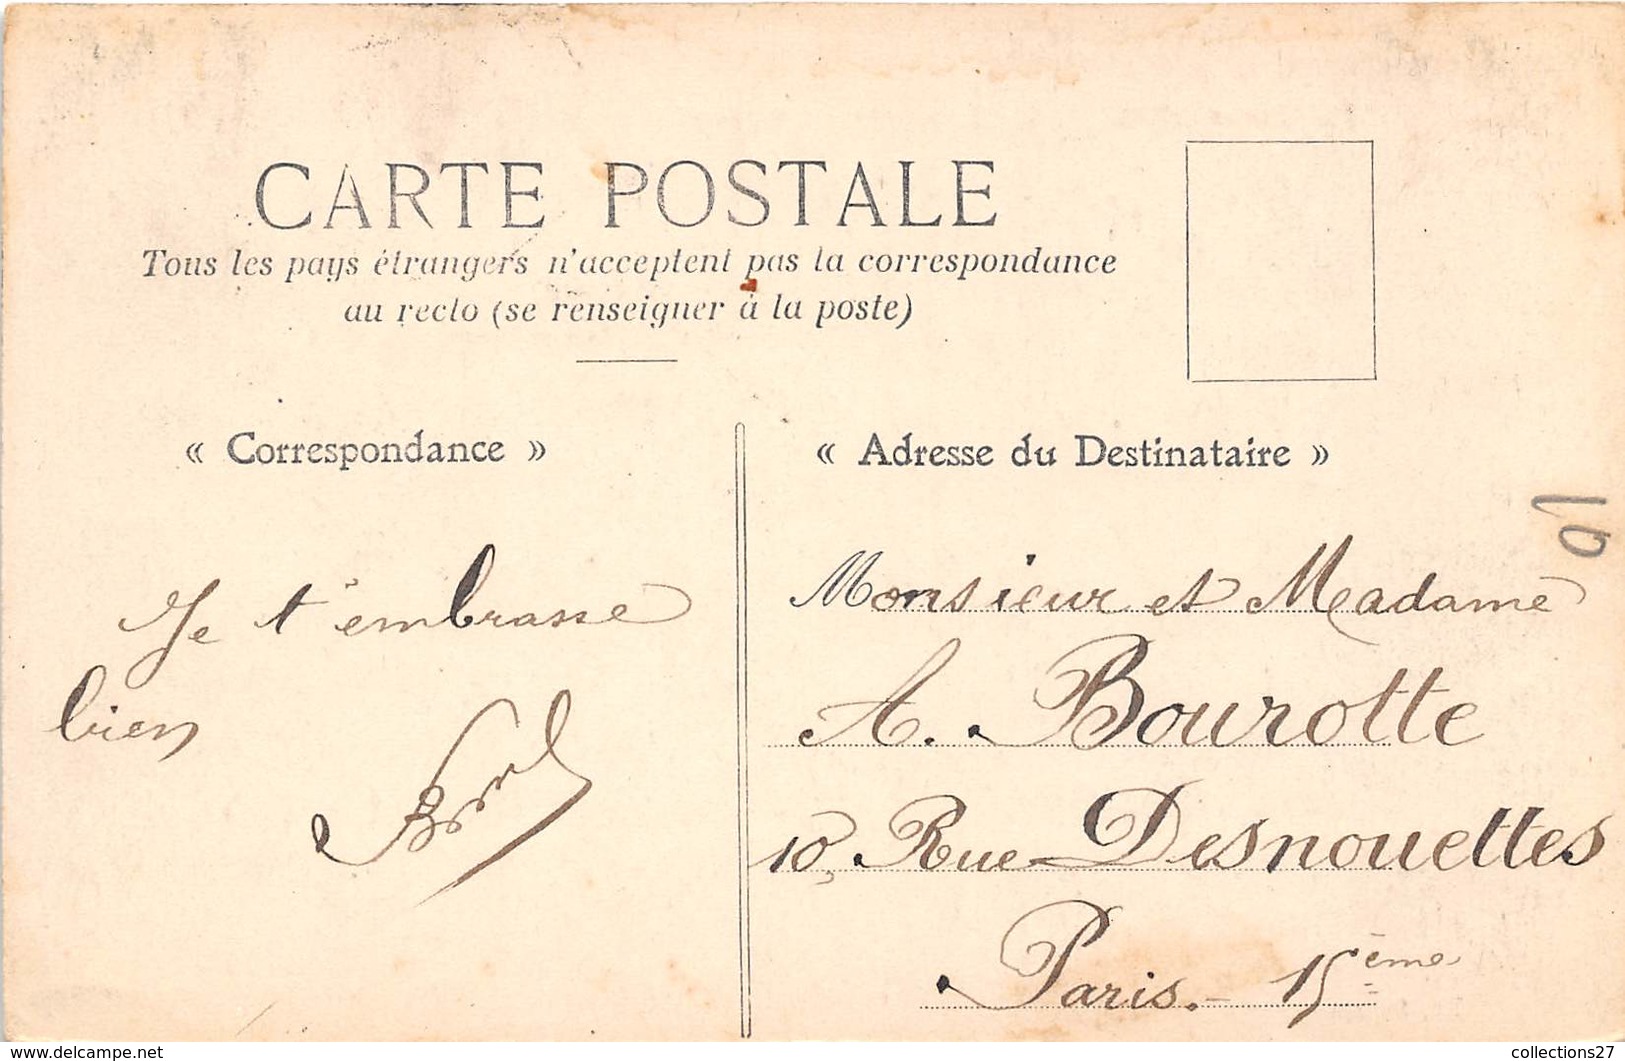 CARTE POSTALE
Tous les pays étrangers n'acceptent pas la correspondance
au recto (se renseigner à la poste)
« Correspondance »
Je t'embrasse
bien
« Adresse du Destinataire »
Monsieur et Madame
A. Bourotte
10, Rue Desnouettes
Paris. - 15ème
91
delcampe.net
collections27